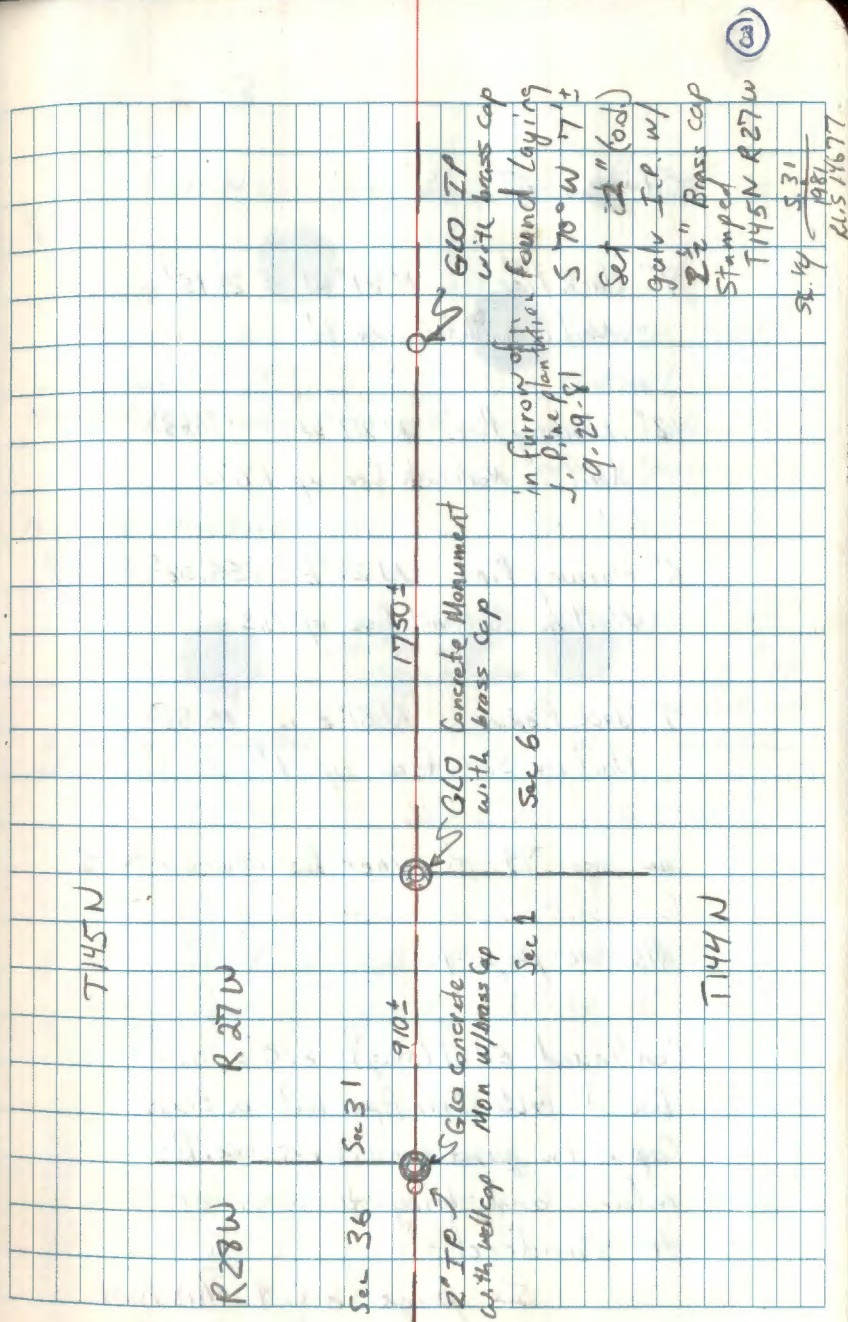 T145N
R28W
R27W
Sec 36
Sec 31
910±
1750±
2" IP
with wellcap
GLO Concrete
Mon w/brass Cap
GLO Concrete Monument
with brass Cap
Sec 1
Sec 6
T144N
GLO IP
with brass cap
in furrow of
J. Pine plantation
9-29-81
found laying
S 70° W 7'±
Set (o.d.)
galv I.P. w/
2½" Brass cap
Stamped
T145N R27W
S. 31
1981
RLS 14677